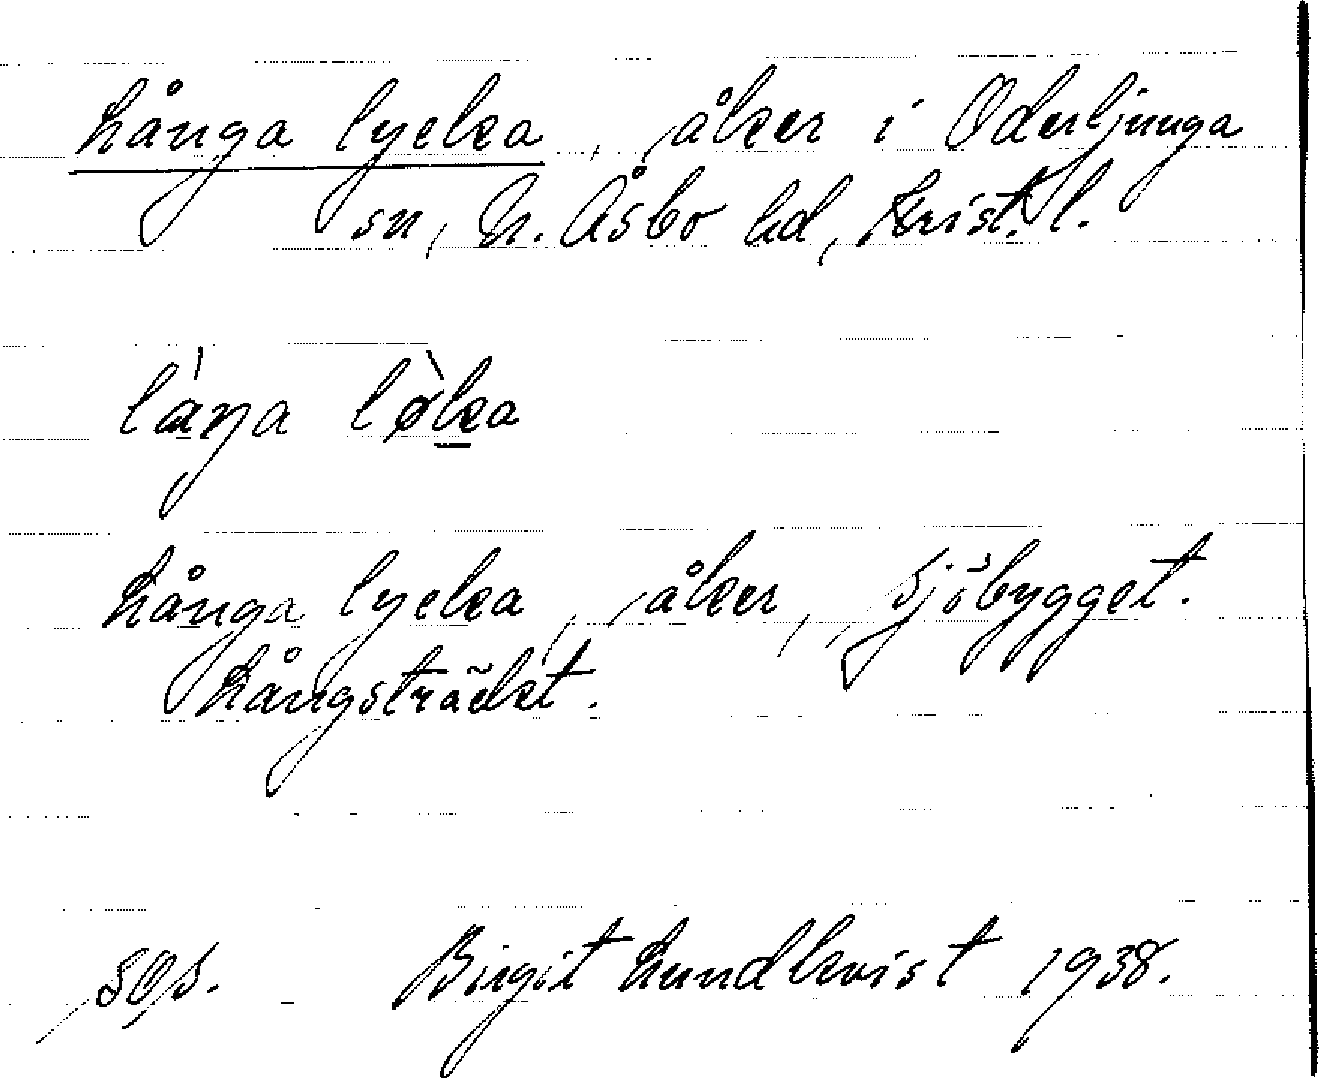 Långa lycka, åker i Oderljunga
sn, N. Åsbo hd, Krist. l.
làŋa lø̀ka
Långa lycka, åker, Sjöbygget.
Långsträckt.
sås. Birgit Lundkvist 1938.